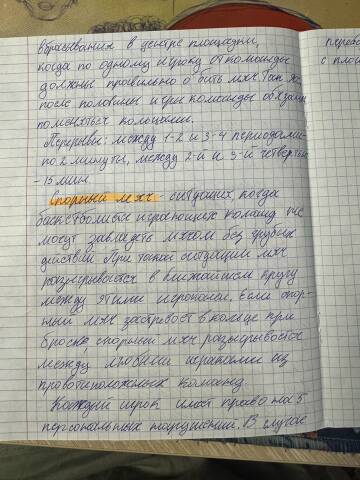 вбрасывания в центре площадки,
когда по одному игроку от команды
должны правильно о бить мяч. Так же
после половины игры команды обязаны
поменяться кольцами.
Перерывы: между 1-2 и 3-4 периодами-
по 2 минуты, между 2-й и 3-й четвертью
- 15 мин.
Спорный мяч - ситуация, когда
баскетболисты играющих команд не
могут завладеть мячом без грубых
действий. При такой ситуации мяч
разыгрывается в ближайшем кругу
между этими игроками. Если спор-
ный мяч застревает в кольце при
броске, спорный мяч разыгрывается
между любыми игроками из
противоположных команд.
Каждый игрок имеет право на 5
персональных нарушений. В случае